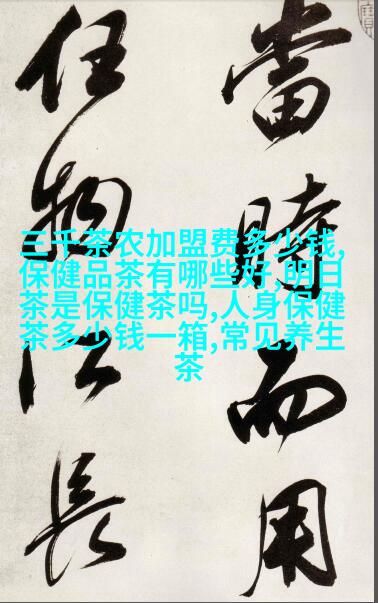 當時而用
任物長
三千茶农加盟费多少钱,
保健品茶有哪些好,明日
茶是保健茶吗,人身保健
茶多少钱一箱,常见养生
茶